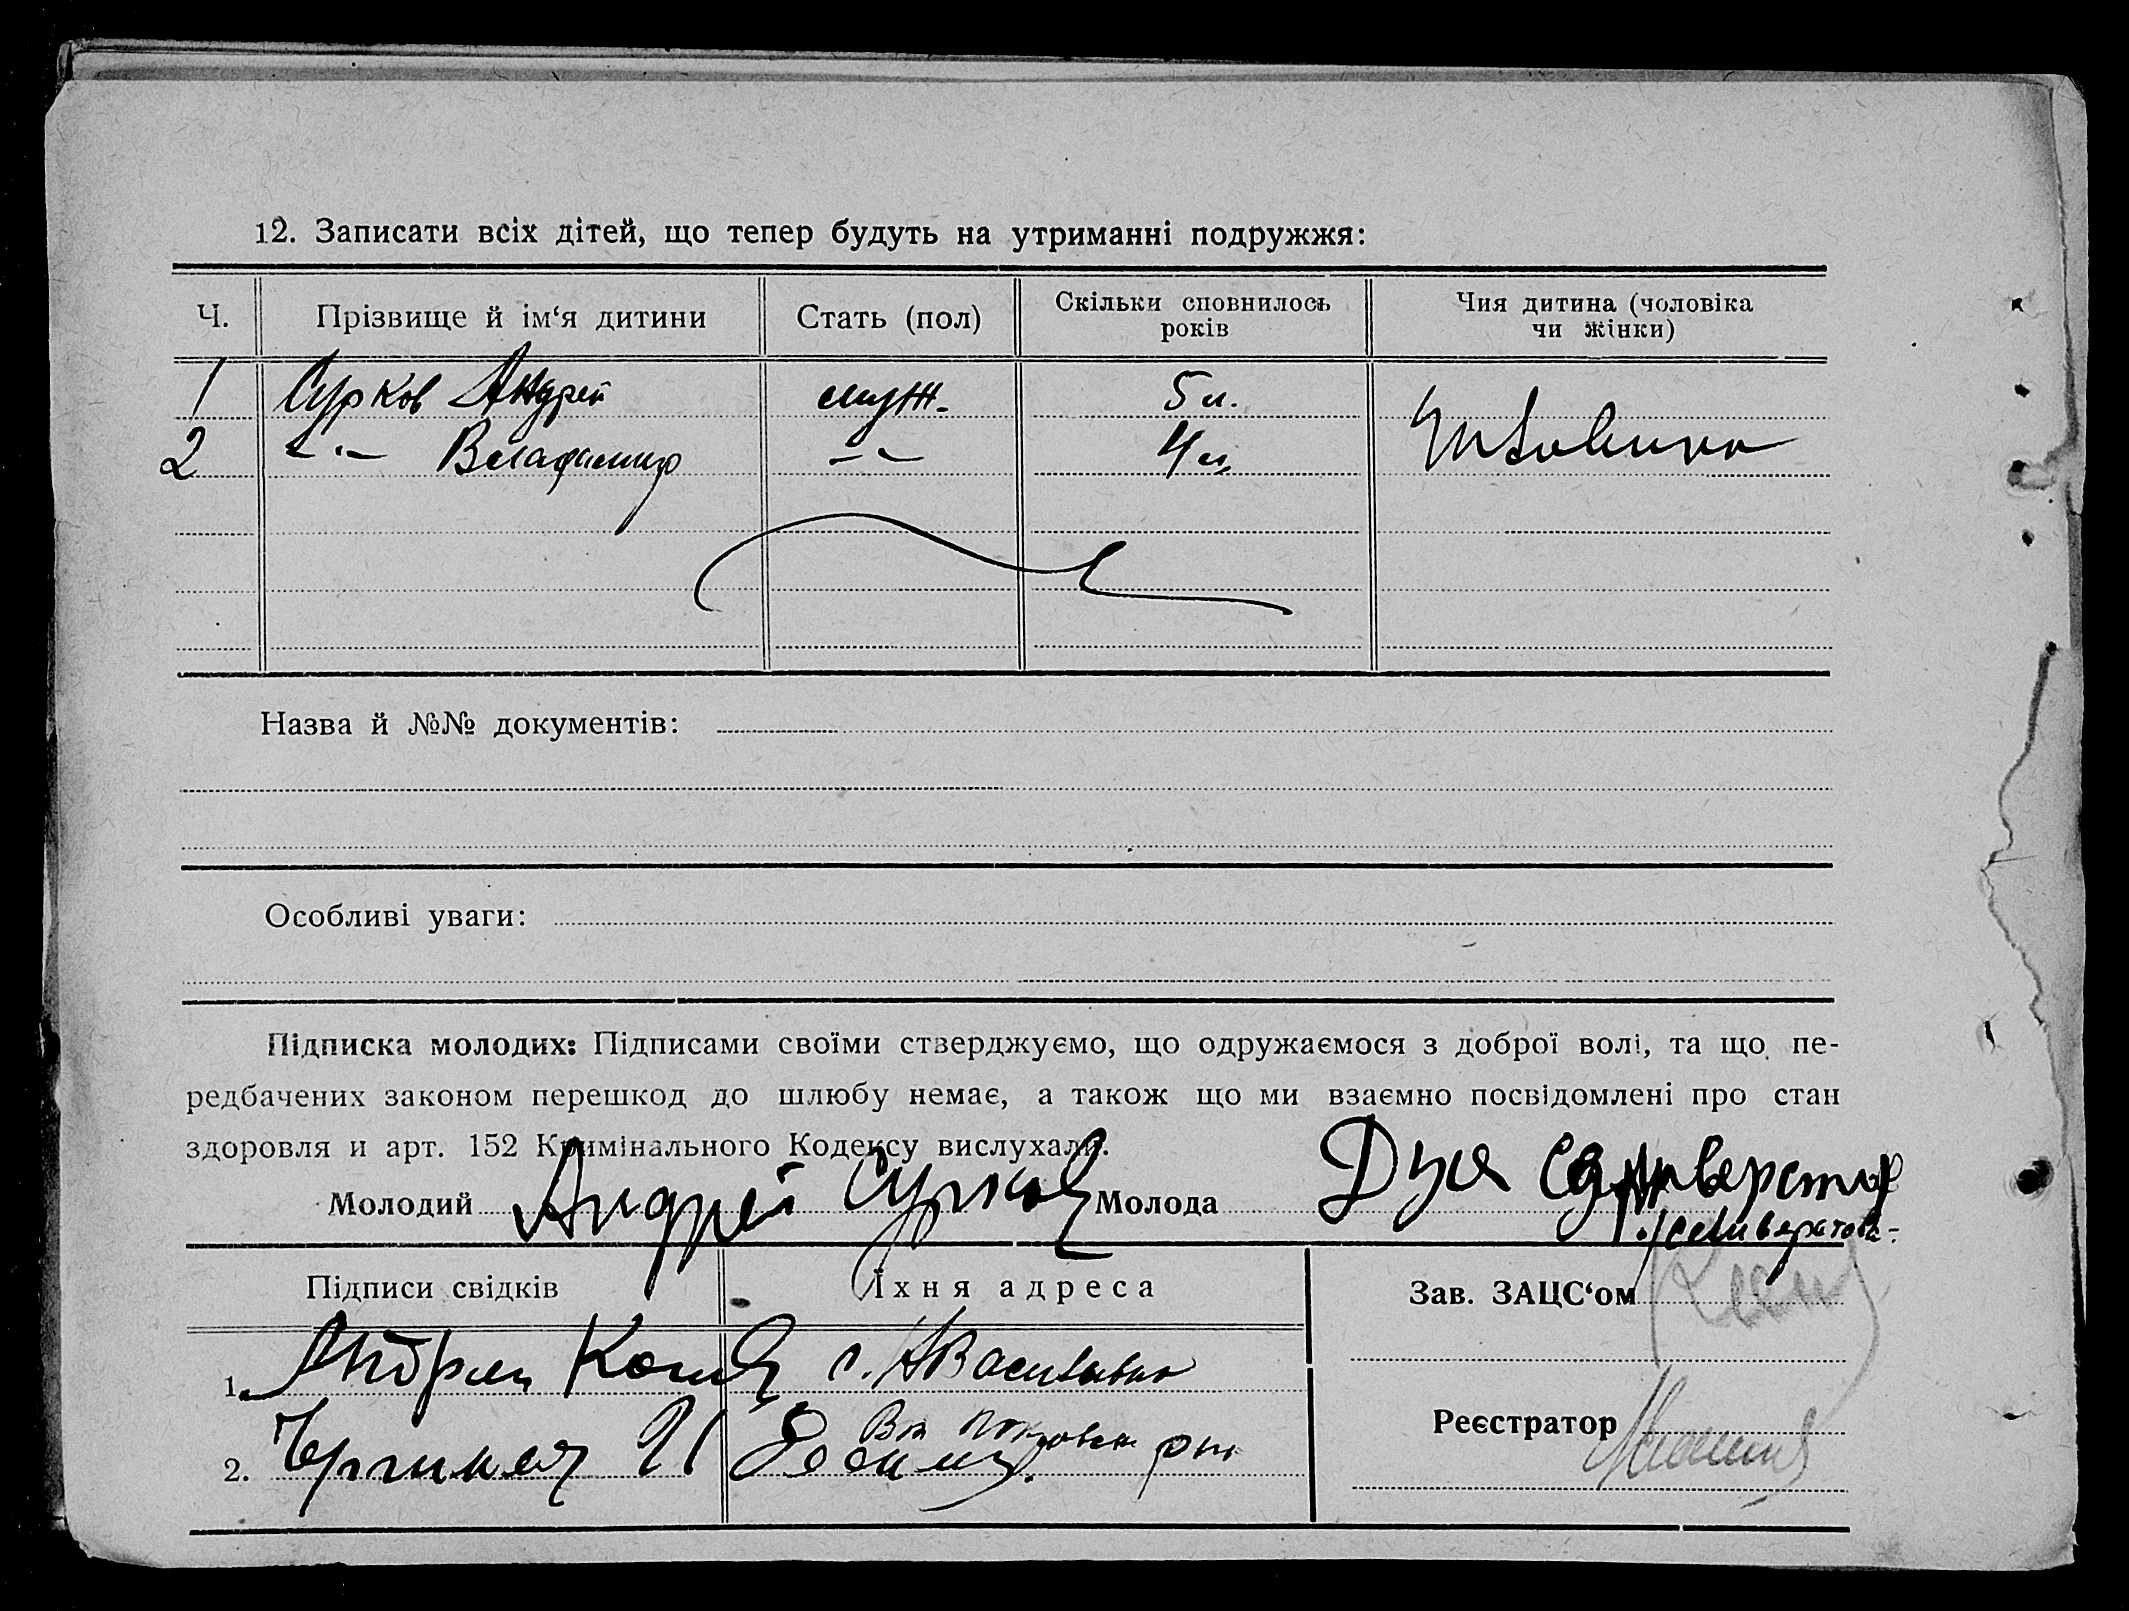 12. Записати всіх дітей, що тепер будуть на утриманні подружжя:
Ч. Прізвище й ім‘я дитини Стать (пол) Скільки сповнилось років Чия дитина (чоловіка чи жінки)
1 Сурков Андрей муж. 5 л.
2 -"- Владимир -"- 4 л.
Назва й №№ документів:
Особливі уваги:
Підписка молодих: Підписами своїми стверджуємо, що одружаємося з доброї волі, та що пе-
редбачених законом перешкод до шлюбу немає, а також що ми взаємно посвідомлені про стан
здоровля и арт. 152 Кримінального Кодексу вислухали.
Молодий Андрей Сурков Молода Дуся
Підписи свідків Їхня адреса Зав. ЗАЦС‘ом
1. Андрей с.
2. Реєстратор